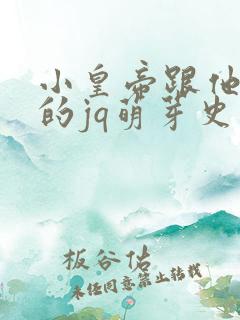 小皇帝跟他
的jq萌芽史
板谷佑
未经同意禁止转载